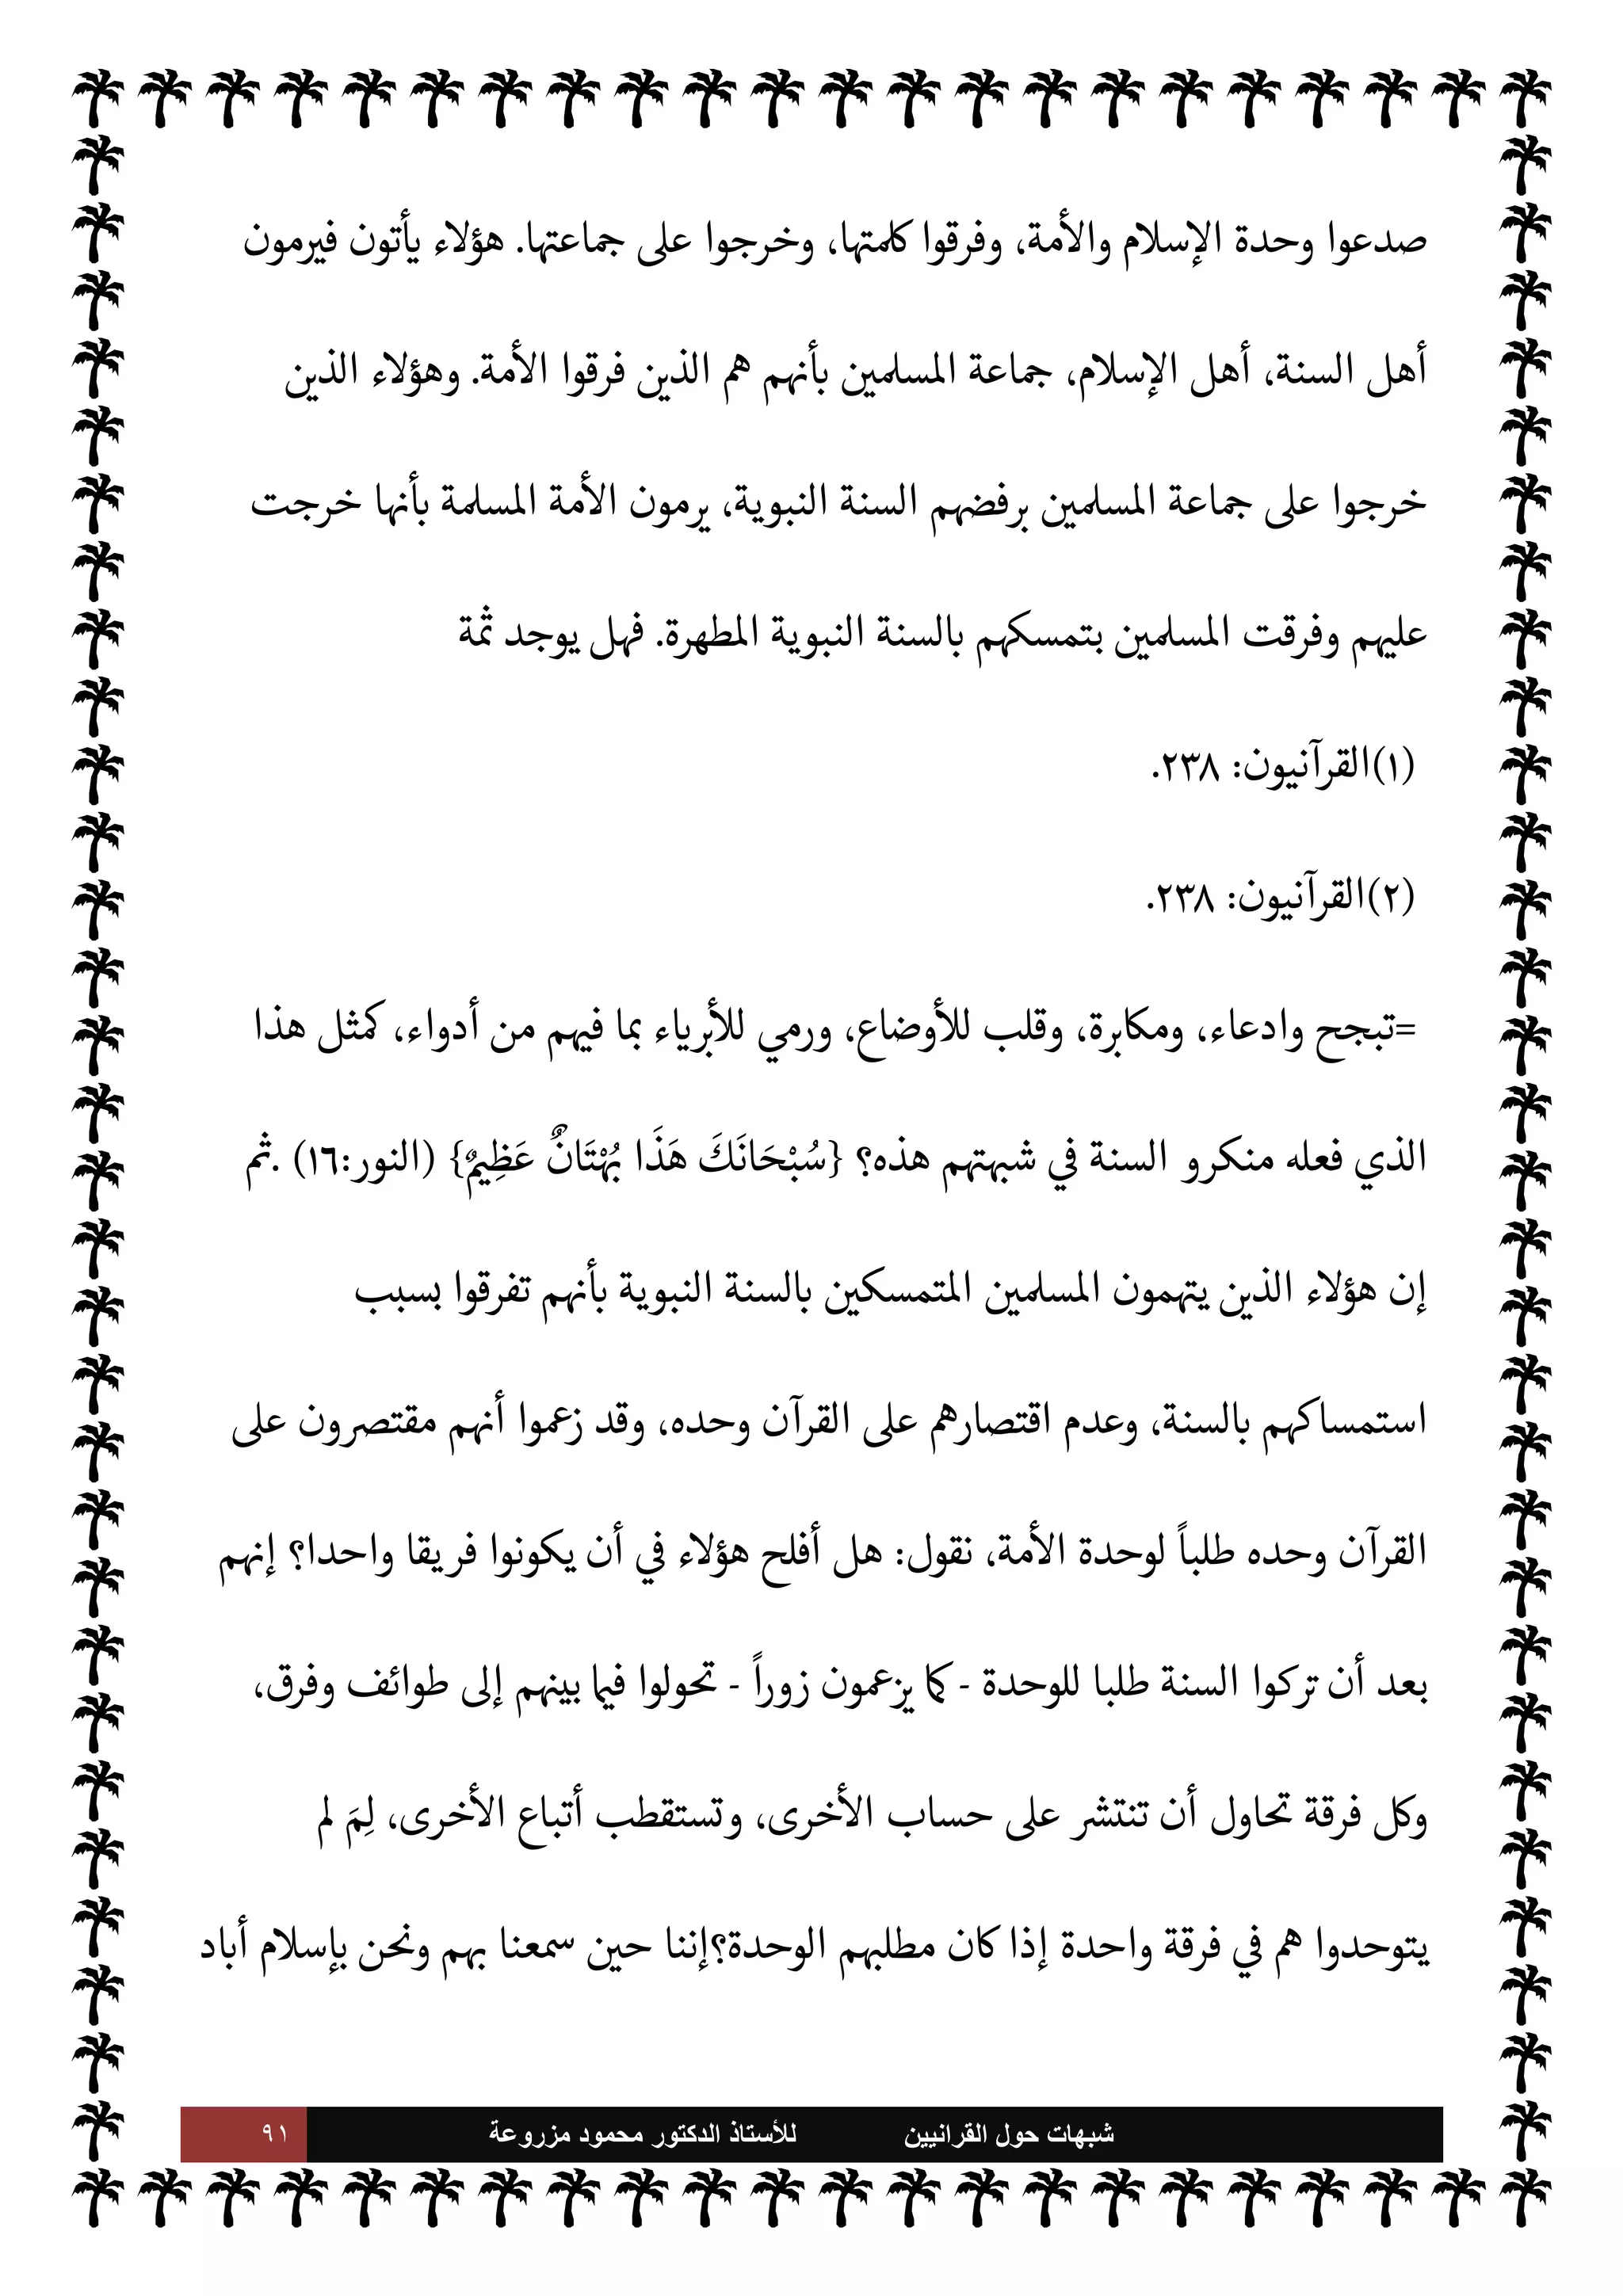 صدعوا وحدة الإسلام والأمة، وفرقوا كلمتها، وخرجوا على جماعتها. هؤلاء يأتون فيرمون
أهل السنة، أهل الإسلام، جماعة المسلمين بأنهم هم الذين فرقوا الأمة. وهؤلاء الذين
خرجوا على جماعة المسلمين برفضهم السنة النبوية، يرمون الأمة المسلمة بأنها خرجت
عليهم وفرقت المسلمين بتمسكهم بالسنة النبوية المطهرة. فهل يوجد ثمة
(١)القرآنيون: ٢٣٨.
(٢)القرآنيون: ٢٣٨.
=تبجح وادعاء، ومكابرة، وقلب للأوضاع، ورمي للأبرياء بما فيهم من أدواء، كمثل هذا
الذي فعله منكرو السنة في شبهتهم هذه؟ {سُبْحَانَكَ هَذَا بُهْتَانٌ عَظِيمٌ} (النور:١٦) .ثم
إن هؤلاء الذين يتهمون المسلمين المتمسكين بالسنة النبوية بأنهم تفرقوا بسبب
استمساكهم بالسنة، وعدم اقتصارهم على القرآن وحده، وقد زعموا أنهم مقتصرون على
القرآن وحده طلباً لوحدة الأمة، نقول: هل أفلح هؤلاء في أن يكونوا فريقا واحدا؟ إنهم
بعد أن تركوا السنة طلبا للوحدة - كما يزعمون زوراً - تحولوا فيما بينهم إلى طوائف وفرق،
وكل فرقة تحاول أن تنتشر على حساب الأخرى، وتستقطب أتباع الأخرى، لِمَ لم
يتوحدوا هم في فرقة واحدة إذا كان مطلبهم الوحدة؟إننا حين سمعنا بهم ونحن بإسلام أباد
شبهات حول القرانيين للأستاذ الدكتور محمود مزروعة ٩١